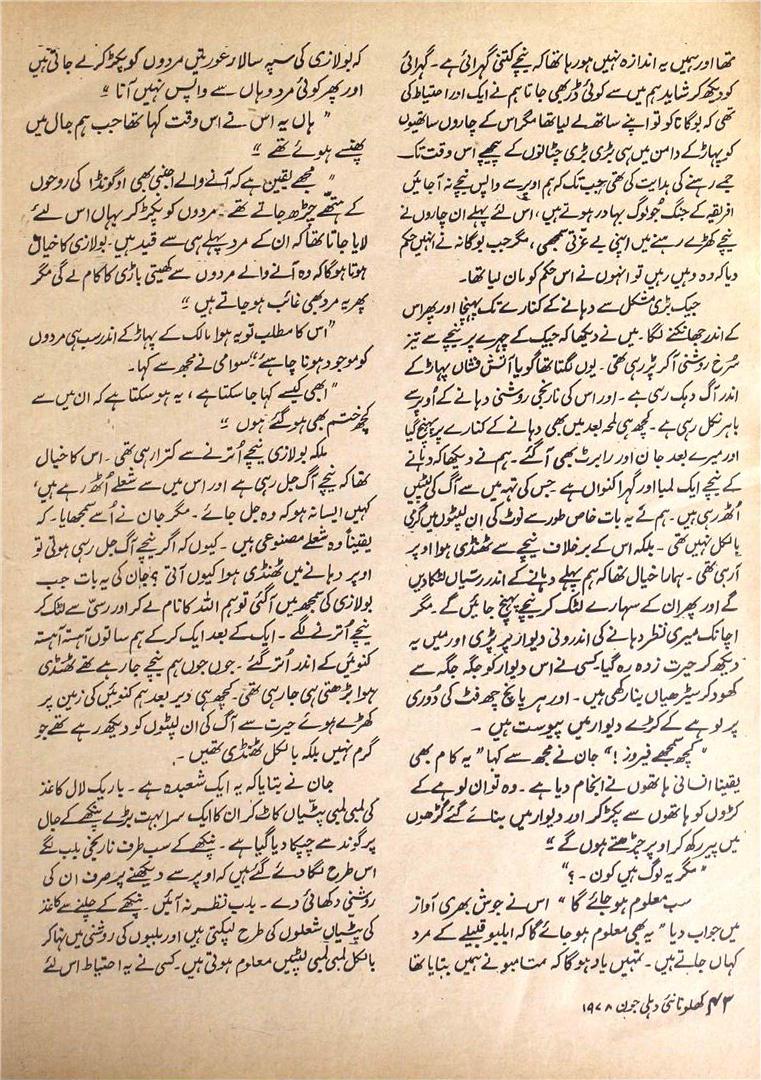 تھا اور ہمیں یہ اندازہ نہیں ہو رہا تھا کہ نیچے کتنی گہرائی ہے۔ گہرائی
کو دیکھ کر شاید ہم میں سے کوئی ڈر بھی جاتا ہم نے ایک اور احتیاط کی
تھی کہ بوگانا کو تو اپنے ساتھ لے لیا تھا مگر اس کے چاروں ساتھیوں
کو پہاڑ کے دامن میں ہی بڑی بڑی چٹانوں کے پیچھے اس وقت تک
جمے رہنے کی ہدایت کی تھی جب تک ہم اوپر سے واپس نیچے نہ آ جائیں
افریقہ کے جنگ جُو لوگ بہادر ہوتے ہیں، اس لئے پہلے ان چاروں نے
نیچے کھڑے رہنے میں اپنی بے عزّتی سمجھی، مگر جب بوگانہ نے انہیں حکم
دیا کہ وہ وہیں رہیں تو انہوں نے اس حکم کو مان لیا تھا۔
جیک بڑی مشکل سے دہانے کے کنارے تک پہنچا اور پھر اس
کے اندر جھانکنے لگا۔ میں نے دیکھا کہ جیک کے چہرے پر نیچے سے تیز
سُرخ روشنی آ کر پڑ رہی تھی۔ یوں لگتا تھا گویا آتش فشاں پہاڑ کے
اندر آگ دہک رہی ہے۔ اور اس کی نارنجی روشنی دہانے کے اُوپر سے
باہر نکل رہی ہے۔ کچھ ہی لمحہ بعد میں بھی دہانے کے کنارے پر پہنچ گیا
اور میرے بعد جان اور رابرٹ بھی آ گئے۔ ہم نے دیکھا کہ دہانے
کے نیچے ایک لمبا اور گہرا کنواں ہے جس کی تہہ میں سے آگ کی لپٹیں
اُٹھ رہی ہیں۔ ہم نے یہ بات خاص طور سے نوٹ کی ان لپٹوں میں گرمی
بالکل نہیں تھی۔ بلکہ اس کے برخلاف نیچے سے ٹھنڈی ہوا اوپر
آ رہی تھی۔ ہمارا خیال تھا کہ ہم پہلے دہانے کے اندر رسّیاں لٹکا دیں
گے اور پھر ان کے سہارے لٹک کر نیچے پہنچ جائیں گے۔ مگر
اچانک میری نظر دہانے کی اندرونی دیوار پر پڑی اور میں یہ
دیکھ کر حیرت زدہ رہ گیا کسی نے اس دیوار کو جگہ جگہ سے
کھود کر سیڑھیاں بنا رکھی ہیں۔ اور ہر پانچ چھ فٹ کی دُوری
پر لوہے کے کڑے دیوار میں پیوست ہیں۔
"کچھ سمجھے فیروز!" جان نے مجھ سے کہا "یہ کام بھی
یقینا انسانی ہاتھوں نے انجام دیا ہے۔ وہ تو ان لوہے کے
کڑوں کو ہاتھوں سے پکڑ کر اور دیوار میں بنائے گئے گڑھوں
میں پیر رکھ کر اوپر چڑھتے ہوں گے"
"مگر یہ لوگ ہیں کون۔؟"
سب معلوم ہو جائے گا" اس نے جوش بھری آواز
میں جواب دیا "یہ بھی معلوم ہو جائے گا کہ ایلیو قبیلے کے مرد
کہاں جاتے ہیں۔ تمہیں یاد ہو گا کہ متامبو نے ہمیں بتایا تھا
کہ بولازی کی سپہ سالار عورتیں مردوں کو پکڑ کر لے جاتی ہیں
اور پھر کوئی مرد وہاں سے واپس نہیں آتا"
"ہاں یہ اس نے اس وقت کہا تھا جب ہم جال میں
پھنسے ہوئے تھے"
"مجھے یقین ہے کہ آنے والے اجنبی بھی اوگونڈا کی روحوں
کے ہتھے چڑھ جاتے تھے۔ مردوں کو پکڑ کر یہاں اس لئے
لایا جاتا تھا کہ ان کے مرد پہلے ہی سے قید ہیں۔ بولازی کا خیال
ہوتا ہو گا کہ وہ آنے والے مردوں سے کھیتی باڑی کا کام لے گی مگر
پھر یہ مرد بھی غائب ہو جاتے ہیں"
"اس کا مطلب تو یہ ہوا مالک کے پہاڑ کے اندر سب ہی مردوں
کو موجود ہونا چاہئے" سوامی نے مجھ سے کہا۔
"ابھی کیسے کہا جا سکتا ہے، یہ ہو سکتا ہے کہ ان میں سے
کچھ ختم بھی ہو گئے ہوں"
ملکہ بولازی نیچے اُترنے سے کترا رہی تھی۔ اس کا خیال
تھا کہ نیچے آگ جل رہی ہے اور اس میں سے شعلے اُٹھ رہے ہیں،
کہیں ایسا نہ ہو کہ وہ جل جائے۔ مگر جان نے اُسے سمجھایا۔ کہ
یقیناً وہ شعلے مصنوعی ہیں۔ کیوں کہ اگر نیچے آگ جل رہی ہوتی تو
اوپر دہانے میں ٹھنڈی ہوا کیوں آتی؟ جان کی یہ بات جب
بولازی کی سمجھ میں آ گئی تو ہم اللہ کا نام لے کر اور رسّی سے لٹک کر
نیچے اُترنے لگے۔ ایک کے بعد ایک کر کے ہم ساتوں آہستہ آہستہ
کنوئیں کے اندر اُتر گئے۔ جوں جوں ہم نیچے جا رہے تھے ٹھنڈی
ہوا بڑھتی ہی جا رہی تھی۔ کچھ ہی دیر بعد ہم کنوئیں کی زمین پر
کھڑے ہوئے حیرت سے آگ کی ان لپٹوں کو دیکھ رہے تھے جو
گرم نہیں بلکہ بالکل ٹھنڈی تھیں۔
جان نے بتایا کہ یہ ایک شعبدہ ہے۔ باریک لال کاغذ
کی لمبی لمبی پٹیاں کاٹ کر ان کا ایک سرا بہت بڑے پنکھے کے جال
پر گوند سے چپکا دیا گیا ہے۔ پنکھے کے سب طرف نارنجی بلب لگے
اس طرح لگا دئے گئے ہیں کہ اوپر سے دیکھنے پر صرف ان کی
روشنی دکھائی دے۔ بلب نظر نہ آئیں۔ پنکھے کے چلنے سے کاغذ
کی پٹّیاں شعلوں کی طرح لپکتی ہیں اور بلبوں کی روشنی میں نہا کر
بالکل لمبی لمبی لپٹیں معلوم ہوتی ہیں۔ کسی نے یہ احتیاط اس لئے
۴۲ کھلونا نئی دہلی جون ۱۹۷۸